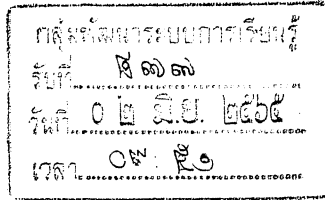 กลุ่มพัฒนาระบบการเรียนรู้
รับที่ ๕๗๗
วันที่ ๐ ๒ มิ.ย. ๒๕๖๕
เวลา